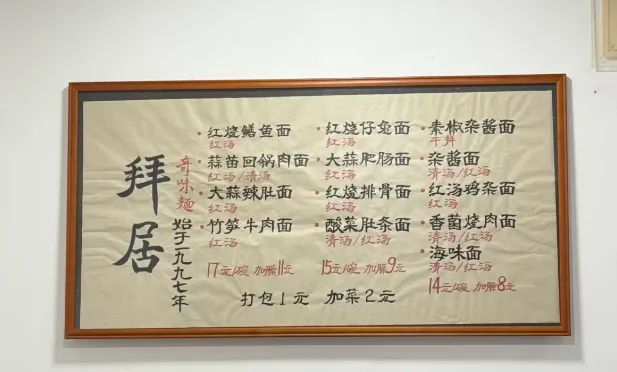 拜居
奇味麵
始于一九九七年
·红烧鳝鱼面
红汤
·蒜苗回锅肉面
红汤/清汤
·大蒜辣肚面
红汤
·竹笋牛肉面
红汤
17元/碗 加臊11元
·红烧仔兔面
红汤
·大蒜肥肠面
红汤
·红烧排骨面
红汤
·酸菜肚条面
清汤/红汤
15元/碗 加臊9元
·素椒杂酱面
干拌
·杂酱面
清汤/红汤
·红汤鸡杂面
红汤
·香菌烧肉面
清汤/红汤
·海味面
清汤/红汤
14元/碗 加臊8元
打包1元 加菜2元